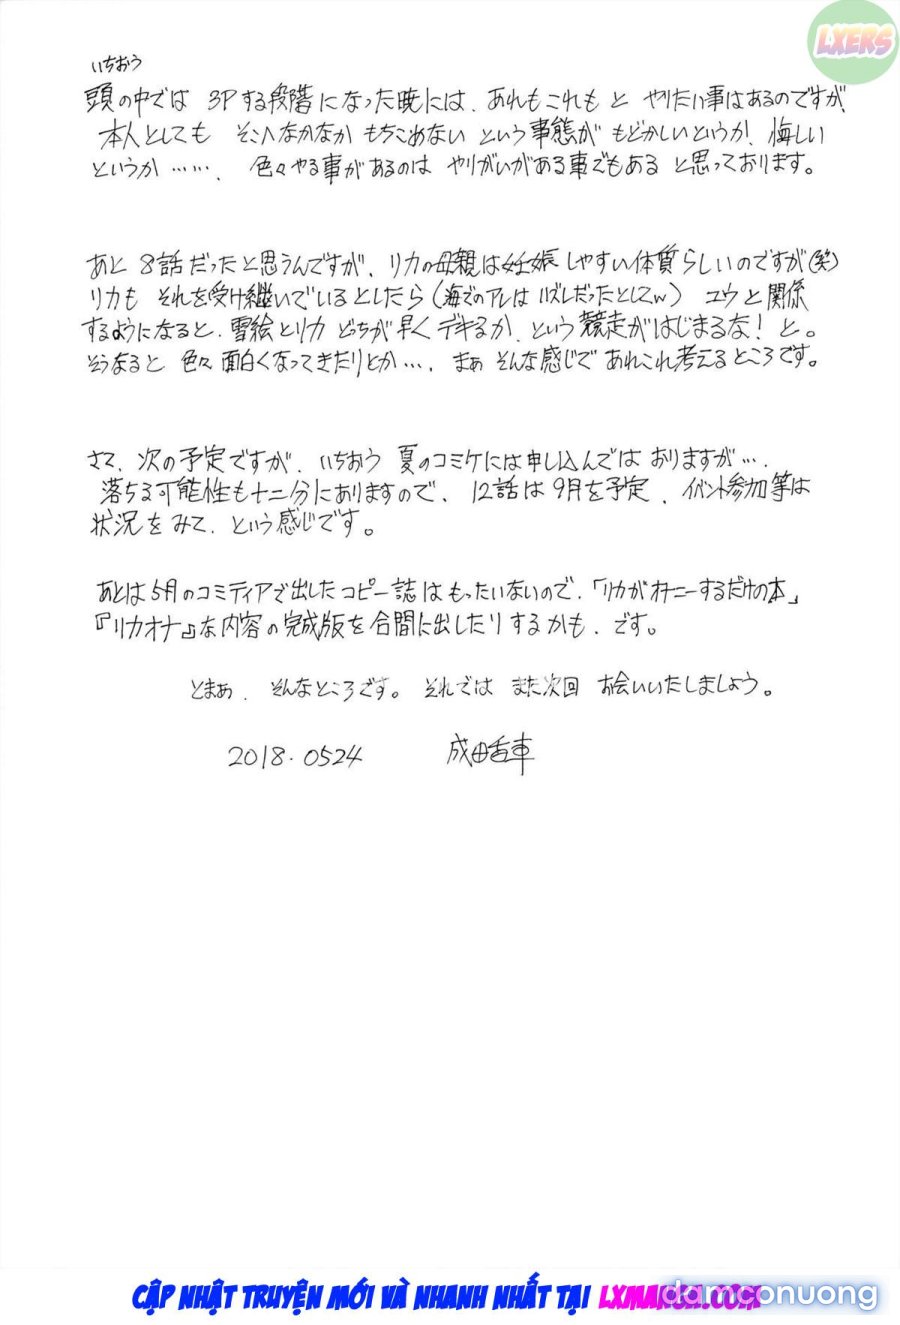 LXERS
いちおう
頭の中では 3Pする段階になった暁には、あれもこれも と やりたい事はあるのですが、
本人としても そこへなかなか もちこめない という事態が もどかしいというか、悔しい
というか……、 色々やる事があるのは やりがいがある事でもある と思っております。
あと 8話だったと思うんですが、リカの母親は妊娠しやすい体質らしいのですが(笑)
リカも それを受け継いでいるとしたら(海でのアレは ハズレだったとしてw) ユウと関係
するようになると、雪絵とリカ どちが早くデキるか、という競走がはじまるな！と。
そうなると 色々面白くなってきたりとか…、まぁ そんな感じで あれこれ考えるところです。
さて、次の予定ですが、いちおう 夏のコミケには申し込んでは おりますが…、
落ちる可能性も十二分にありますので、12話は9月を予定、イベント参加等は
状況をみて、という感じです。
あとは5月のコミティアで出したコピー誌はもったいないので、「リカがオナニーするだけの本」
『リカオナ』な内容の完成版を合間に出したりするかも、です。
とまぁ、そんなところです。それでは また次回 お会いいたしましょう。
2018.0524 成田香車
CẬP NHẬT TRUYỆN MỚI VÀ NHANH NHẤT TẠI LXMANGA.COM
damconuong